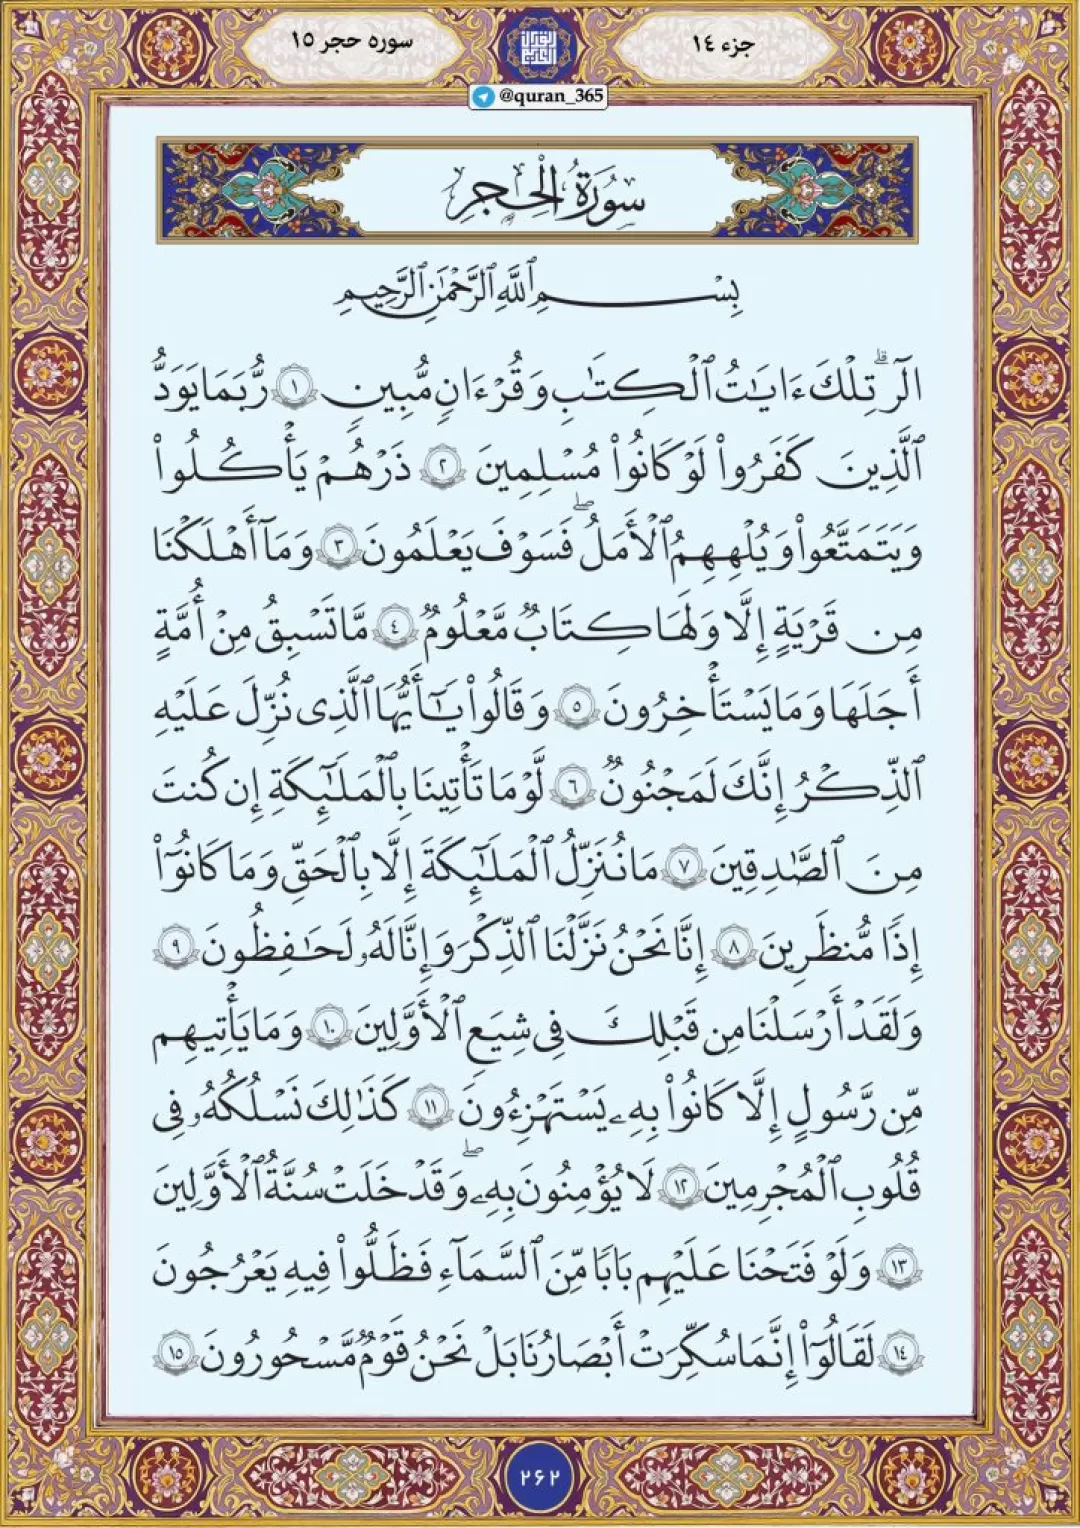 جزء ١٤
سوره حجر ١٥
@quran_365
سُورَةُ الْحِجْرِ
بِسْمِ ٱللَّهِ ٱلرَّحْمَٰنِ ٱلرَّحِيمِ
الٓرۚ تِلْكَ ءَايَٰتُ ٱلْكِتَٰبِ وَقُرْءَانٍ مُّبِينٍ ١ رُّبَمَا يَوَدُّ
ٱلَّذِينَ كَفَرُوا۟ لَوْ كَانُوا۟ مُسْلِمِينَ ٢ ذَرْهُمْ يَأْكُلُوا۟
وَيَتَمَتَّعُوا۟ وَيُلْهِهِمُ ٱلْأَمَلُۖ فَسَوْفَ يَعْلَمُونَ ٣ وَمَآ أَهْلَكْنَا
مِن قَرْيَةٍ إِلَّا وَلَهَا كِتَابٌ مَّعْلُومٌ ٤ مَّا تَسْبِقُ مِنْ أُمَّةٍ
أَجَلَهَا وَمَا يَسْتَـْٔخِرُونَ ٥ وَقَالُوا۟ يَٰٓأَيُّهَا ٱلَّذِى نُزِّلَ عَلَيْهِ
ٱلذِّكْرُ إِنَّكَ لَمَجْنُونٌ ٦ لَّوْ مَا تَأْتِينَا بِٱلْمَلَٰٓئِكَةِ إِن كُنتَ
مِنَ ٱلصَّٰدِقِينَ ٧ مَا نُنَزِّلُ ٱلْمَلَٰٓئِكَةَ إِلَّا بِٱلْحَقِّ وَمَا كَانُوٓا۟
إِذًا مُّنظَرِينَ ٨ إِنَّا نَحْنُ نَزَّلْنَا ٱلذِّكْرَ وَإِنَّا لَهُۥ لَحَٰفِظُونَ ٩
وَلَقَدْ أَرْسَلْنَا مِن قَبْلِكَ فِى شِيَعِ ٱلْأَوَّلِينَ ١٠ وَمَا يَأْتِيهِم
مِّن رَّسُولٍ إِلَّا كَانُوا۟ بِهِۦ يَسْتَهْزِءُونَ ١١ كَذَٰلِكَ نَسْلُكُهُۥ فِى
قُلُوبِ ٱلْمُجْرِمِينَ ١٢ لَا يُؤْمِنُونَ بِهِۦۖ وَقَدْ خَلَتْ سُنَّةُ ٱلْأَوَّلِينَ
١٣ وَلَوْ فَتَحْنَا عَلَيْهِم بَابًا مِّنَ ٱلسَّمَآءِ فَظَلُّوا۟ فِيهِ يَعْرُجُونَ
١٤ لَقَالُوٓا۟ إِنَّمَا سُكِّرَتْ أَبْصَارُنَا بَلْ نَحْنُ قَوْمٌ مَّسْحُورُونَ ١٥
٢۶٢